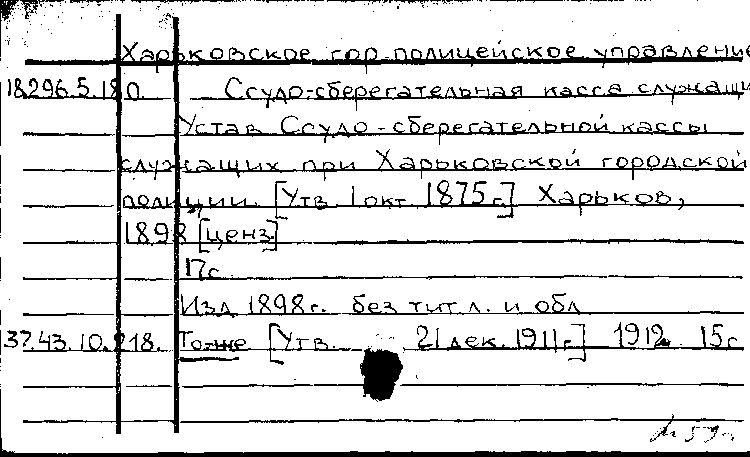 Харьковское гор. полицейское управление
18.296.5.180. Ссудо-сберегательная касса служащи
Устав Ссудо-сберегательной кассы
служащих при Харьковской городской
полиции. [Утв. 1 окт. 1875 г.] Харьков,
1898 [ценз.]
17 с.
Изд. 1898 г. без тит. л. и обл.
37.43.10.218. То-же [Утв. 21 дек. 1911 г.] 1912. 15 с.